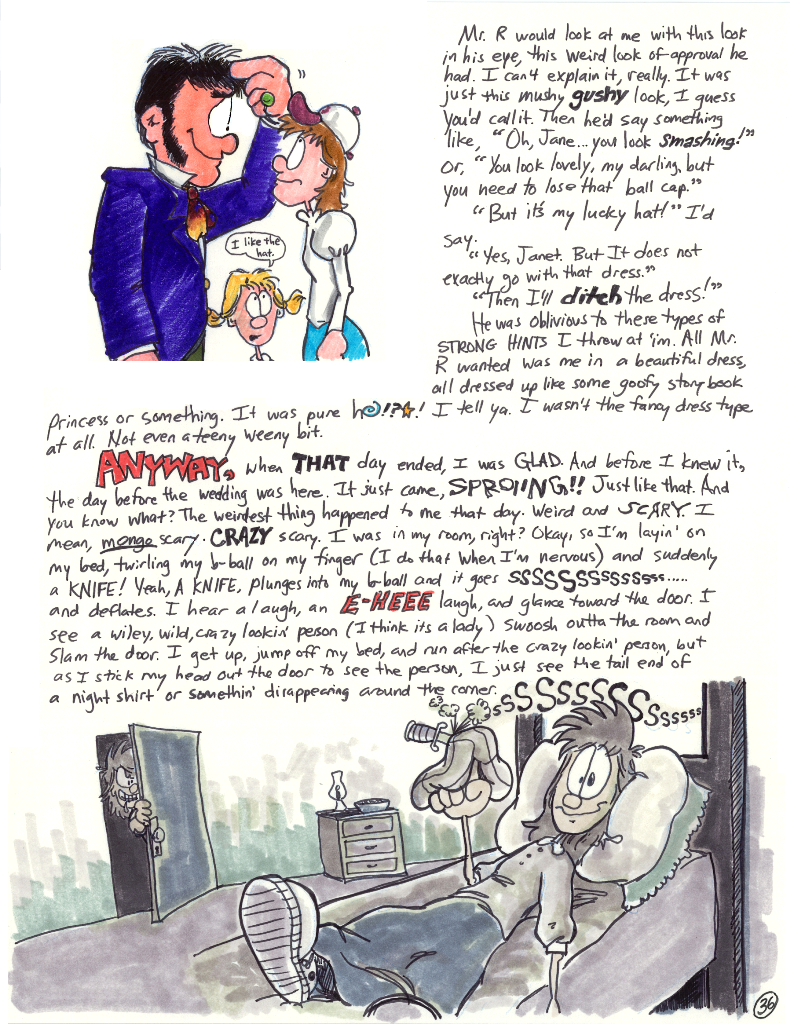 Mr. R would look at me with this look
in his eye, this weird look of approval he
had. I can't explain it, really. It was
just this mushy gushy look, I guess
you'd call it. Then he'd say something
like, "Oh, Jane... you look smashing!"
Or, "You look lovely, my darling, but
you need to lose that ball cap."
"But it's my lucky hat!" I'd
say.
"Yes, Janet. But It does not
exactly go with that dress."
"Then I'll ditch the dress!"
He was oblivious to these types of
STRONG HINTS I throw at 'im. All Mr.
R wanted was me in a beautiful dress,
all dressed up like some goofy story book
Princess or something. It was pure h@!?★! I tell ya. I wasn't the fancy dress type
at all. Not even a teeny weeny bit.
I like the
hat.
ANYWAY, when THAT day ended, I was GLAD. And before I knew it,
the day before the wedding was here. It just came, SPROIING!! Just like that. And
you know what? The weirdest thing happened to me that day. Weird and SCARY. I
mean, mongo scary. CRAZY scary. I was in my room, right? Okay, so I'm layin' on
my bed, twirling my b-ball on my finger (I do that when I'm nervous) and suddenly
a KNIFE! Yeah, A KNIFE, plunges into my b-ball and it goes SSSSSSsssssssss.....
and deflates. I hear a laugh, an E-HEEE laugh, and glance toward the door. I
see a wiley, wild, crazy lookin' person (I think its a lady) swoosh outta the room and
slam the door. I get up, jump off my bed, and run after the crazy lookin' person, but
as I stick my head out the door to see the person, I just see the tail end of
a night shirt or somethin' disappearing around the corner.
ssSSsssSSSSSssssss
36